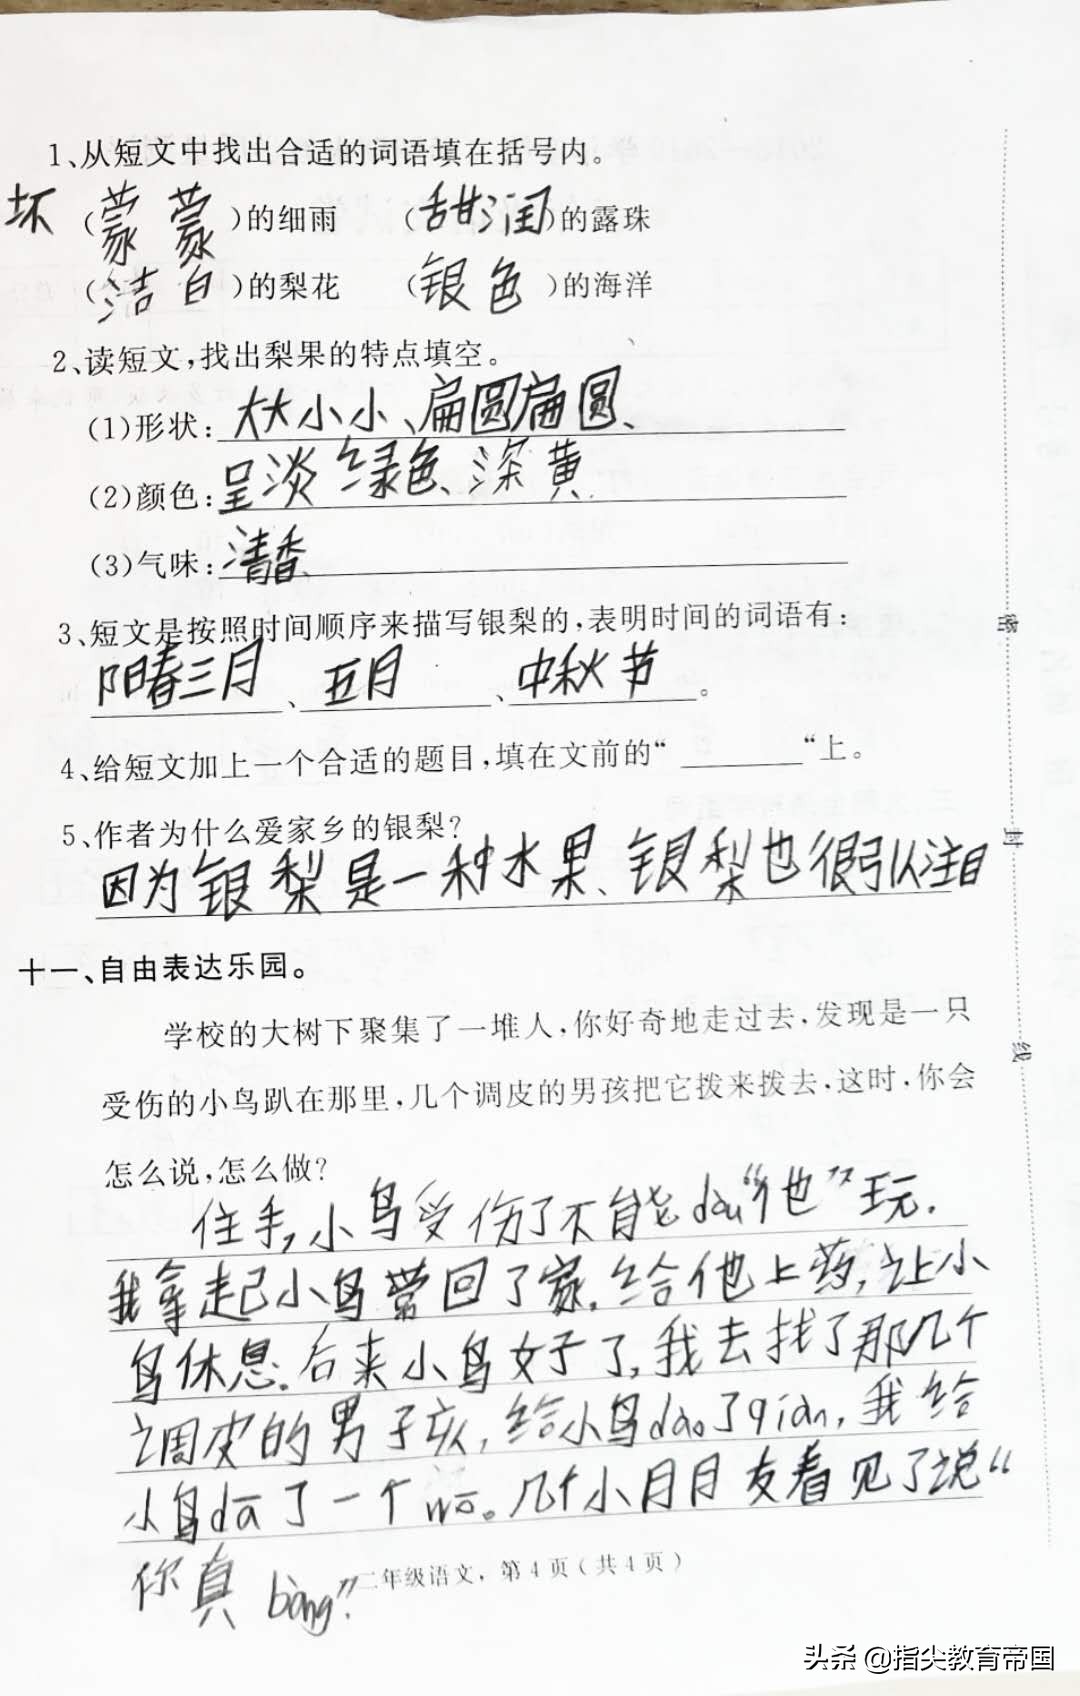 1、从短文中找出合适的词语填在括号内。
坏 (蒙蒙)的细雨 (甜润)的露珠
(洁白)的梨花 (银色)的海洋
2、读短文,找出梨果的特点填空。
(1)形状:大大小小、扁圆扁圆、
(2)颜色:呈淡绿色、深黄
(3)气味:清香
3、短文是按照时间顺序来描写银梨的,表明时间的词语有:
阳春三月、五月、中秋节。
4、给短文加上一个合适的题目,填在文前的“________“上。
5、作者为什么爱家乡的银梨?
因为银梨是一种水果、银梨也很引人注目
十一、自由表达乐园。
学校的大树下聚集了一堆人,你好奇地走过去,发现是一只
受伤的小鸟趴在那里,几个调皮的男孩把它拨来拨去.这时,你会
怎么说,怎么做?
住手,小鸟受伤了不能dòu“他”玩.
我拿起小鸟带回了家.给他上药,让小
鸟休息.后来小鸟好了,我去找了那几个
调皮的男孩,给小鸟dào了qiàn,我给
小鸟dā了一个wō。几个小朋友看见了说“
你真bàng”.
二年级语文,第4页(共4页)
密
封
线
头条 @指尖教育帝国